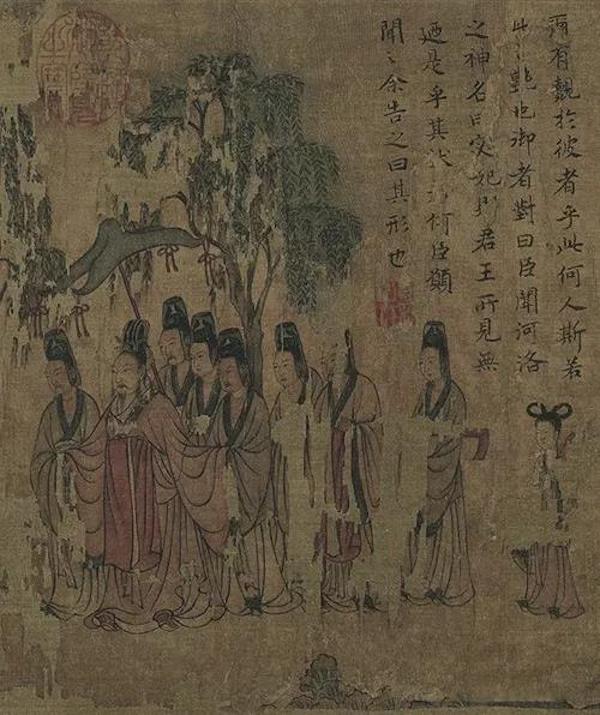 爾有覿於彼者乎此何人斯若
此之艷也御者對曰臣聞河洛
之神名曰宓妃則君王所見無
迺是乎其狀何臣願
聞之余告之曰其形也